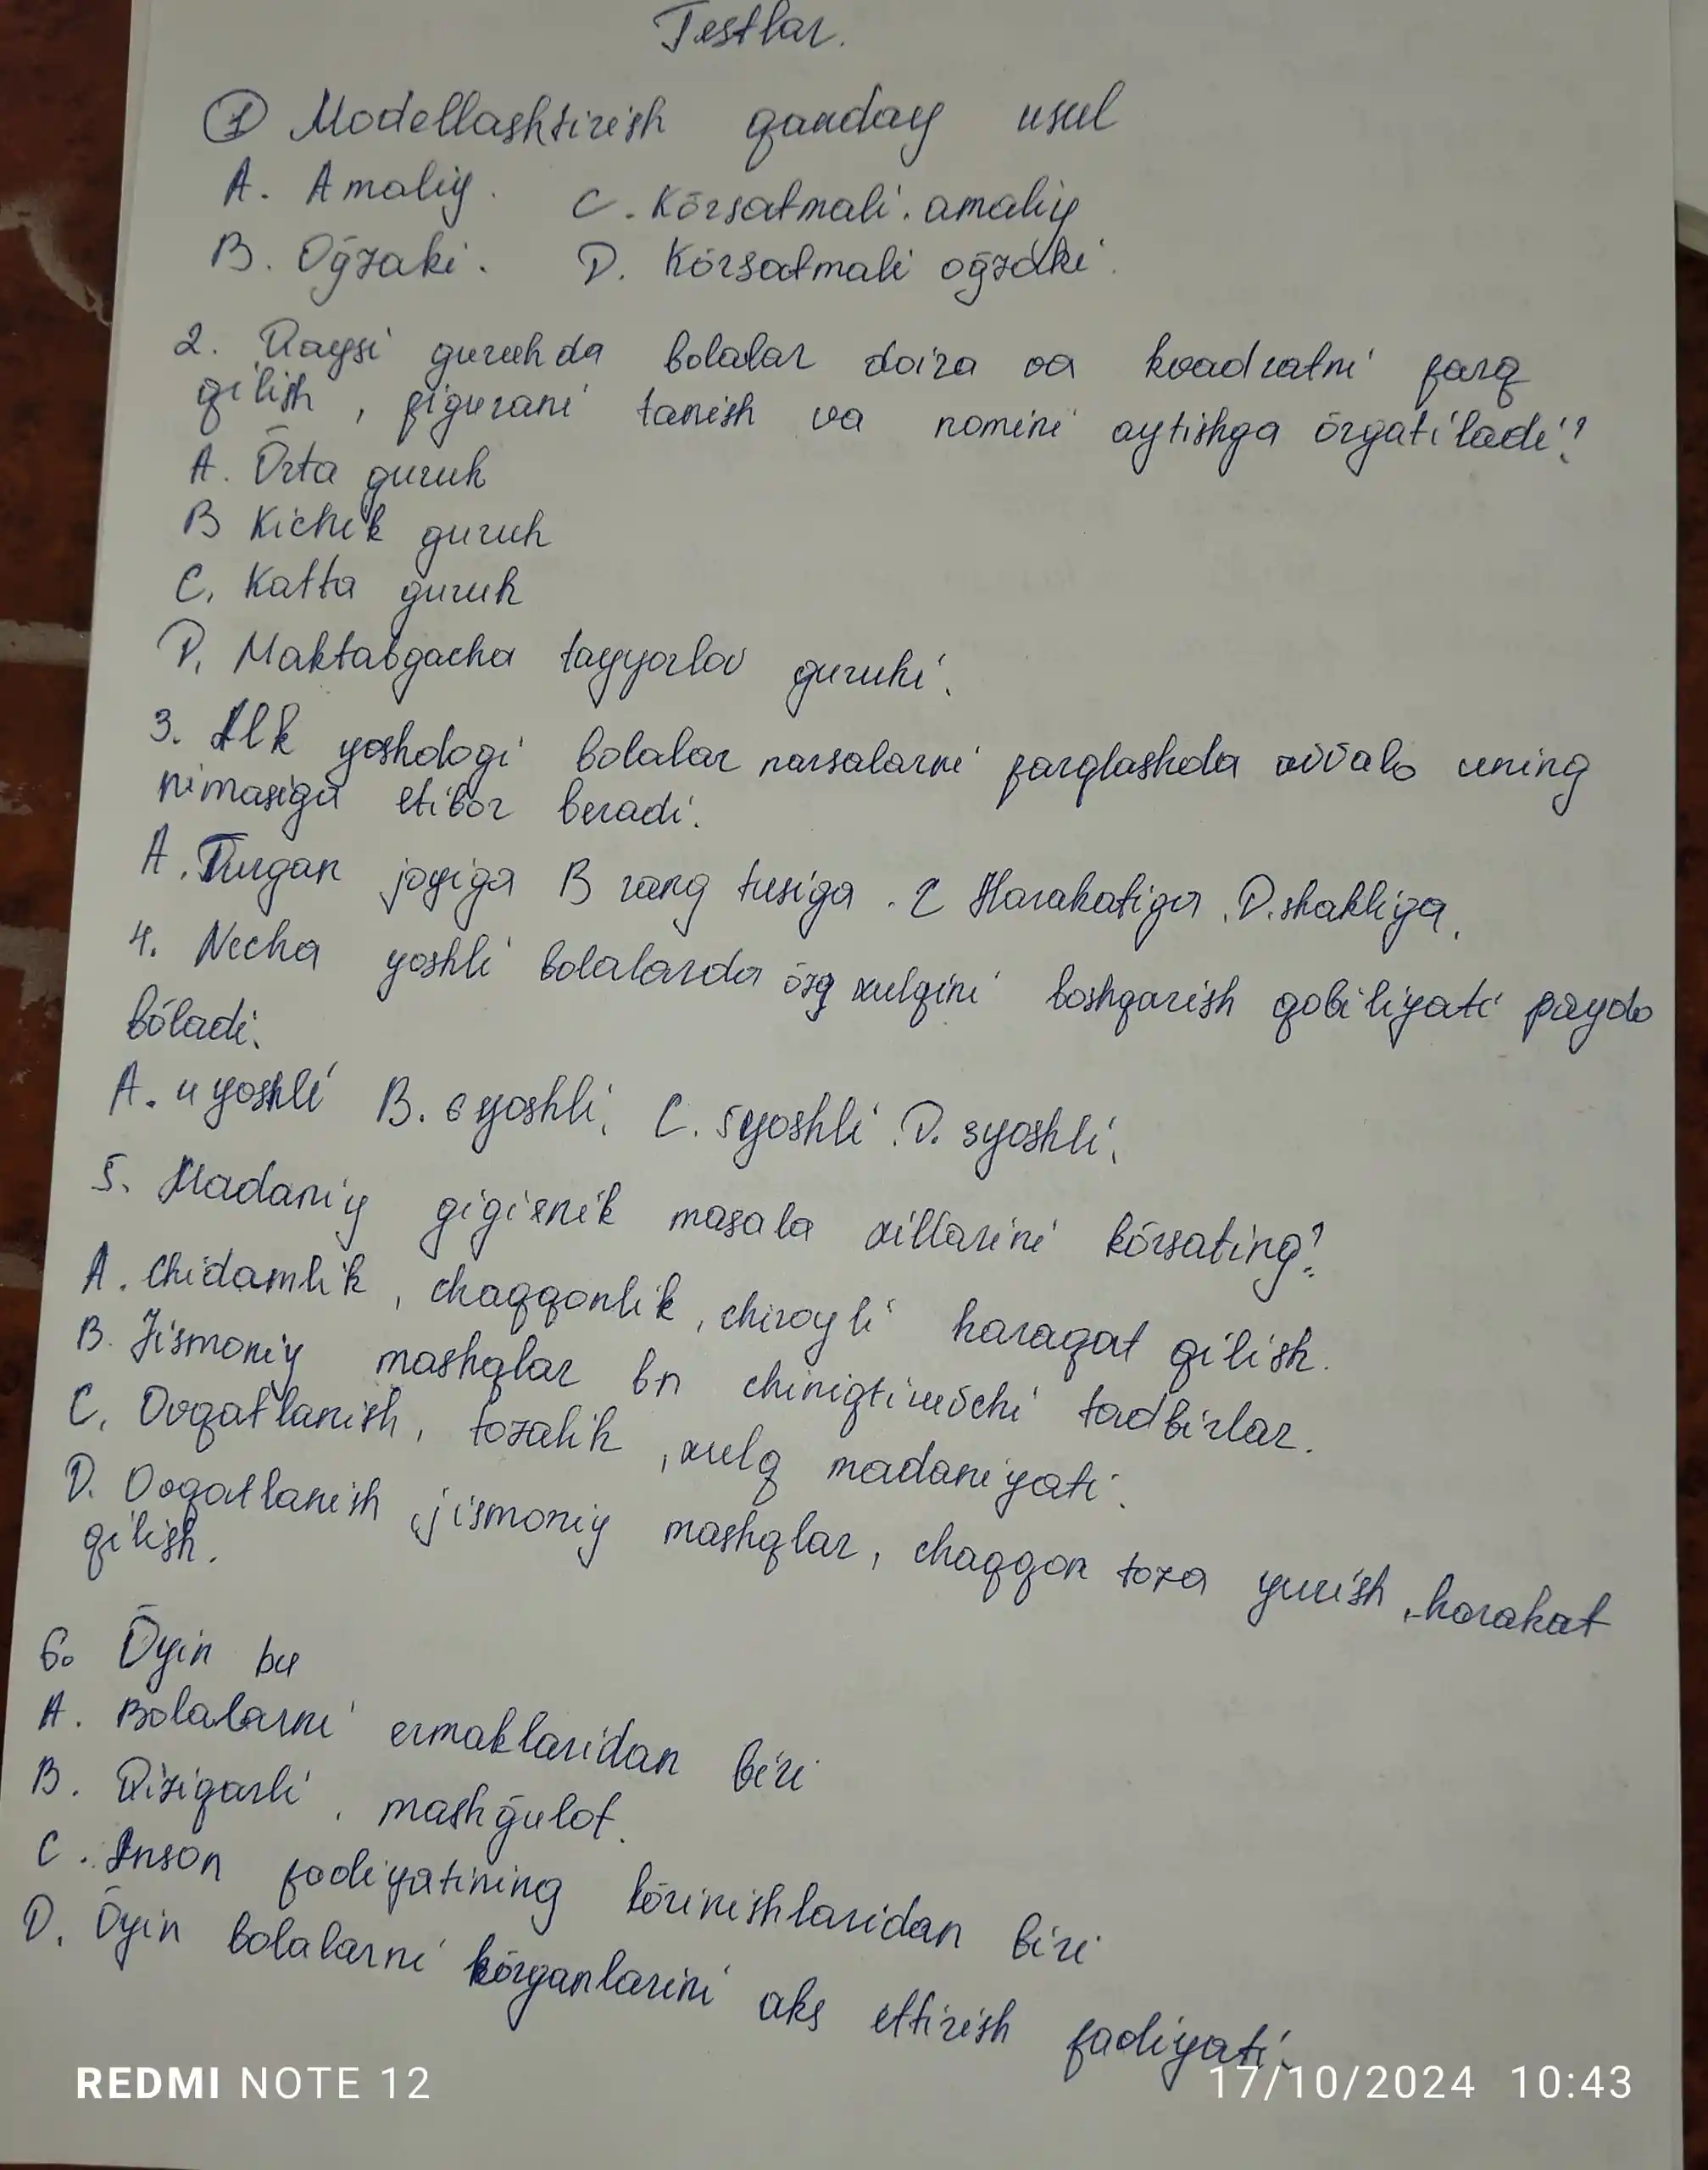 Testlar.
① Modellashtirish qanday usul
A. Amaliy. C. Kōrsatmali. amaliy
B. Oḡzaki. D. Kōrsatmali oḡzaki.
2. Qaysi guruhda bolalar doira va kvadratni farq
qilish, figurani tanish va nomini aytishga ōrgatiladi?
A. Ōrta guruh
B Kichik guruh
C. Katta guruh
D. Maktabgacha tayyorlov guruhi.
3. Ilk yoshdogi bolalar narsalarni farqlashda avvalo uning
nimasiga etibor beradi.
A. Turgan joyiga B rang tusiga. C Harakatiga. D. shakliga.
4. Necha yoshli bolalarda ōzq xulqini boshqarish qobiliyati paydo
bōladi.
A. 4 yoshli B. 6 yoshli. C. 5 yoshli. D. 3 yoshli.
5. Madaniy gigienik masala xillarini kōrsating?
A. Chidamlik, chaqqonlik, chiroyli haraqat qilish.
B. Jismoniy mashqlar bn chiniqtiruvchi tadbirlar.
C. Ovqatlanish, tozalik, xulq madaniyati.
D. Ovqatlanish, jismoniy mashqlar, chaqqon toza yurish, harakat
qilish.
6. Ōyin bu
A. Bolalarni ermaklaridan biri
B. Qiziqarli. mashḡulot.
C. Inson faoliyatining kōrinishlaridan biri
D. Ōyin bolalarni kōrganlarini aks ettirish faoliyati.
REDMI NOTE 12
17/10/2024 10:43